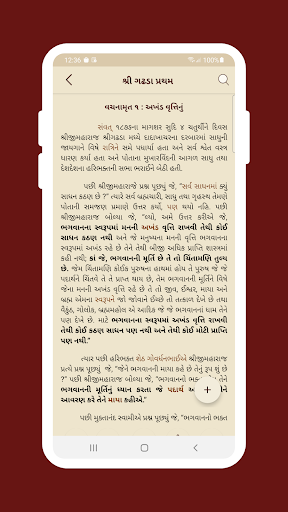 12:36
શ્રી ગઢડા પ્રથમ
વચનામૃત ૧ : અખંડ વૃત્તિનું
સંવત્ ૧૮૭૬ના માગશર સુદિ ૪ ચતુર્થીને દિવસ
શ્રીજીમહારાજ શ્રીગઢડા મધ્યે દાદાખાચરના દરબારમાં સાધુની
જાયગાને વિષે રાત્રિને સમે પધાર્યા હતા અને સર્વ શ્વેત વસ્ત્ર
ધારણ કર્યાં હતાં અને પોતાના મુખારવિંદની આગળ સાધુ તથા
દેશદેશના હરિભક્તની સભા ભરાઈને બેઠી હતી.
પછી શ્રીજીમહારાજે પ્રશ્ન પૂછ્યો જે, “સર્વ સાધનમાં ક્યું
સાધન કઠણ છે ?” ત્યારે સર્વે બ્રહ્મચારી, સાધુ તથા ગૃહસ્થ તેમણે
પોતાની સમજણ પ્રમાણે ઉત્તર કર્યો, પણ થયો નહિ. પછી
શ્રીજીમહારાજ બોલ્યા જે, “લ્યો, અમે ઉત્તર કરીએ જે,
ભગવાનના સ્વરૂપમાં મનની અખંડ વૃત્તિ રાખવી તેથી કોઈ
સાધન કઠણ નથી અને જે મનુષ્યના મનની વૃત્તિ ભગવાનના
સ્વરૂપમાં અખંડ રહે છે તેથી બીજી અધિક પ્રાપ્તિ શાસ્ત્રમાં
કહી નથી; કાં જે, ભગવાનની મૂર્તિ છે તે તો ચિંતામણિ તુલ્ય
છે. જેમ ચિંતામણિ કોઈક પુરુષના હાથમાં હોય તે પુરુષ જે જે
પદાર્થને ચિંતવે તે તે પામે છે, તેમ ભગવાનની મૂર્તિને વિષે
જેના મનની અખંડ વૃત્તિ રહે છે તે તો જીવ, ઈશ્વર, માયા અને
બ્રહ્મ એમના સ્વરૂપને જો જોવાને ઈચ્છે તો તત્કાળ દેખે છે તથા
વૈકુંઠ, ગોલોક, બ્રહ્મમહોલ એ આદિક જે જે ભગવાનનાં ધામ
તેને પણ દેખે છે. માટે ભગવાનના સ્વરૂપમાં અખંડ વૃત્તિ રાખવી
તેથી કોઈ કઠણ સાધન પણ નથી અને તેથી કોઈ મોટી પ્રાપ્તિ
પણ નથી.”
ત્યાર પછી હરિભક્ત શેઠ ગોવર્ધનભાઈએ શ્રીજીમહારાજ
પ્રત્યે પ્રશ્ન પૂછ્યો જે, “જેને ભગવાનની માયા કહે છે તેનું રૂપ શું છે
?” પછી શ્રીજીમહારાજ બોલ્યા જે, “ભગવાનનો ભક્ત તેને
ભગવાનની મૂર્તિનું ધ્યાન કરતા જે પદાર્થ
આવરણ કરે તેને માયા કહીએ.”
પછી મુક્તાનંદ સ્વામીએ પ્રશ્ન પૂછ્યો જે, “ભગવાનનો ભક્ત